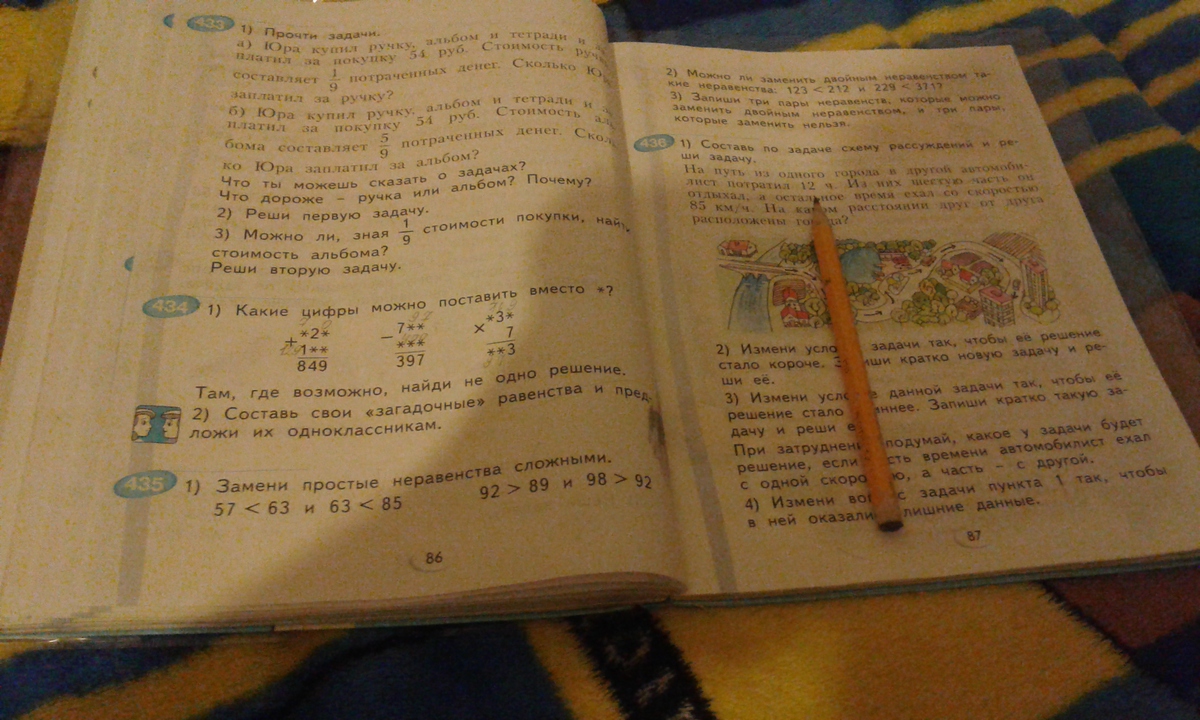 433 1) Прочти задачи.
а) Юра купил ручку, альбом и тетради и
платил за покупку 54 руб. Стоимость
составляет 1/9 потраченных денег. Сколько
заплатил за ручку?
б) Юра купил ручку, альбом и тетради и
платил за покупку 54 руб. Стоимость
бома составляет 5/9 потраченных денег.
ко Юра заплатил за альбом?
Что ты можешь сказать о задачах?
Что дороже – ручка или альбом? Почему?
2) Реши первую задачу.
3) Можно ли, зная 1/9 стоимости покупки,
стоимость альбома?
Реши вторую задачу.
434 1) Какие цифры можно поставить вместо *?
+ *2* 1** 849
– 7** *** 397
× *3* 7 **3
Там, где возможно, найди не одно решение.
2) Составь свои «загадочные» равенства и пред-
ложи их одноклассникам.
435 1) Замени простые неравенства сложными.
57 < 63 и 63 < 85 92 > 89 и 98 > 92
86
2) Можно ли заменить двойным неравенством та-
кие неравенства: 123 < 212 и 229 < 371?
3) Запиши три пары неравенств, которые можно
заменить двойным неравенством, и три пары,
которые заменить нельзя.
436 1) Составь по задаче схему рассуждений и ре-
ши задачу.
На путь из одного города в другой автомоби-
лист потратил 12 ч. Из них шестую часть он
отдыхал, а остальное время ехал со скоростью
85 км/ч. На каком расстоянии друг от друга
расположены города?
2) Измени задачи так, чтобы её решение
стало короче. кратко новую задачу и ре-
ши её.
3) Измени данной задачи так, чтобы её
решение стало Запиши кратко такую за-
дачу и реши
При подумай, какое у задачи будет
решение, если времени автомобилист ехал
с одной а часть – с другой.
4) Измени задачи пункта 1 так, чтобы
в ней лишние данные.
87